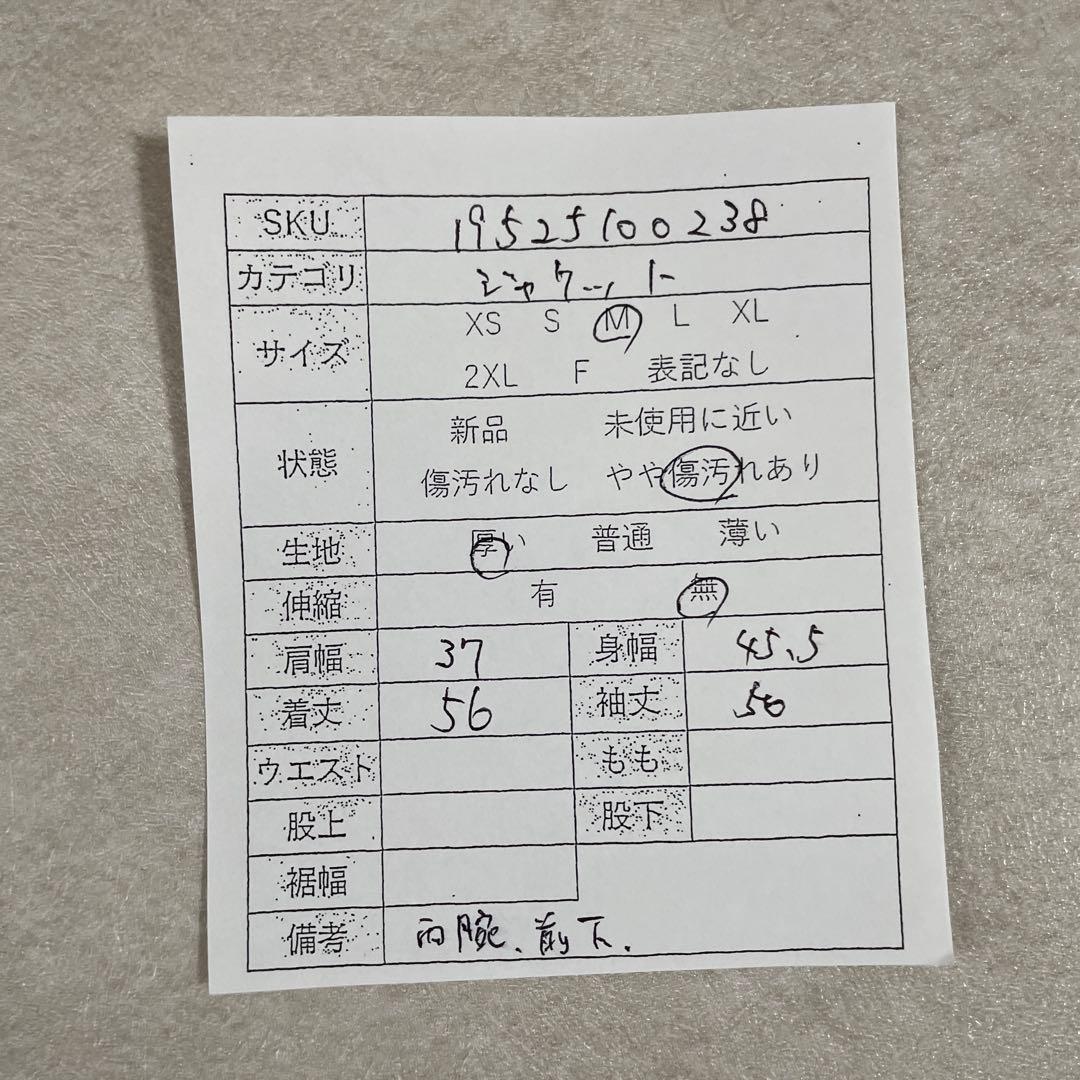 SKU 19525100238
カテゴリ ジャケット
サイズ XS S M L XL
2XL F 表記なし
状態 新品 未使用に近い
傷汚れなし やや傷汚れあり
生地 厚い 普通 薄い
伸縮 有 無
肩幅 37 身幅 45.5
着丈 56 袖丈 56
ウエスト もも
股上 股下
裾幅
備考 両腕、前下.